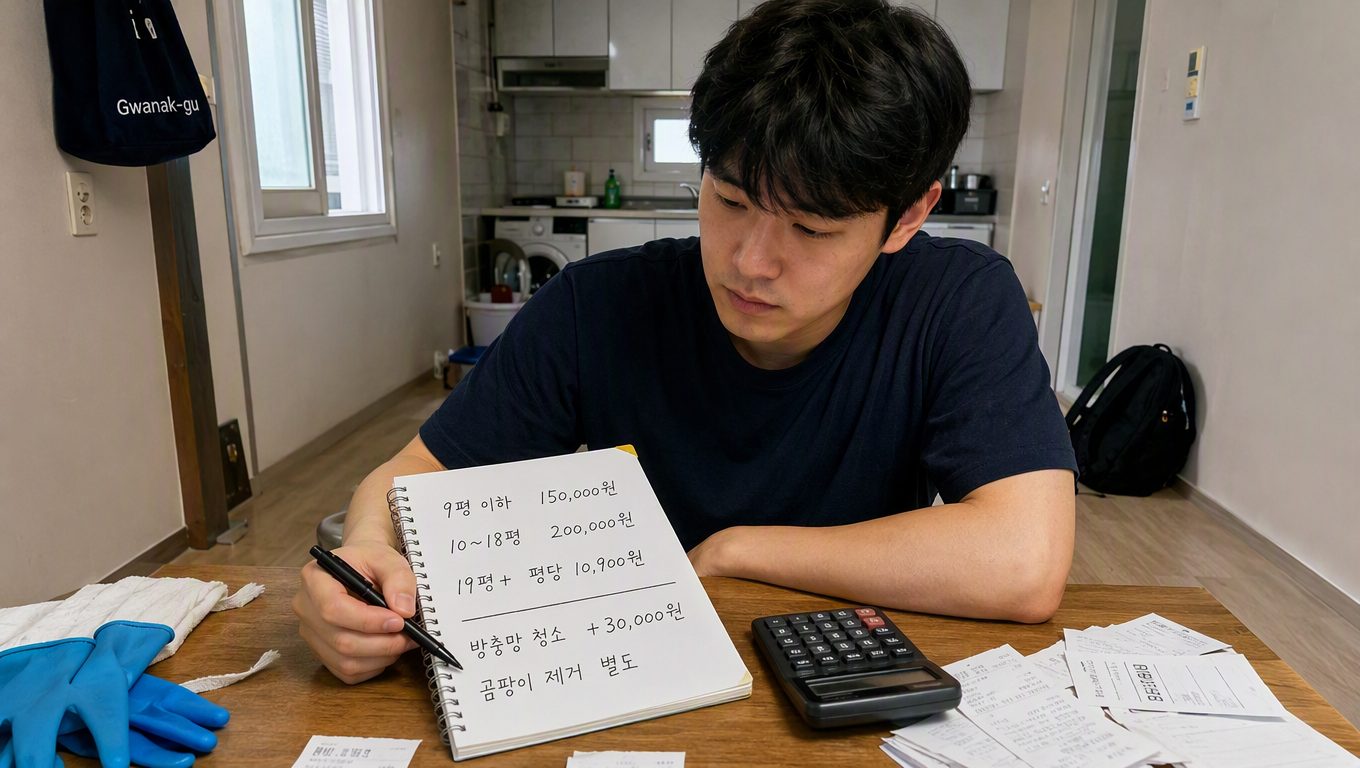 Gwanak-gu
9평 이하 150,000원
10~18평 200,000원
19평+ 평당 10,900원
방충망 청소 +30,000원
곰팡이 제거 별도